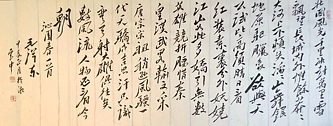 北国风光千里冰封万里雪
飘望长城内外惟余莽莽
大河上下顿失滔滔山舞银蛇
原驰腊象欲与天
公试比高须晴日看
红装素裹分外妖娆
江山如此多娇引无数
英雄竞折腰惜秦
皇汉武略输文采
唐宗宋祖稍逊风骚一
代天骄成吉思汗只识
弯弓射大雕俱往矣
数风流人物还看今
朝
毛泽东